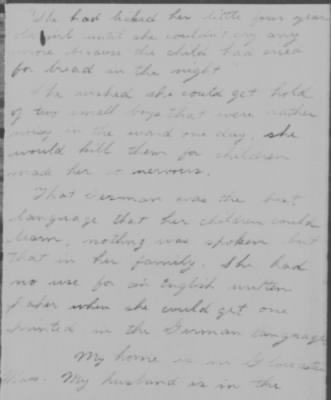 She had licked her little four year
old girl until she couldn't cry any
more because the child had cried
for bread in the night
She wished she could get hold
of two small boys that were rather
noisy in the ward one day, she
would kill them for children
made her so nervous.
That German was the best
language that her children could
learn, nothing was spoken but
that in her family. She had
no use for an English written
paper when she could get one
printed in the German language
My home is in Gloucester
Mass. My husband is in the